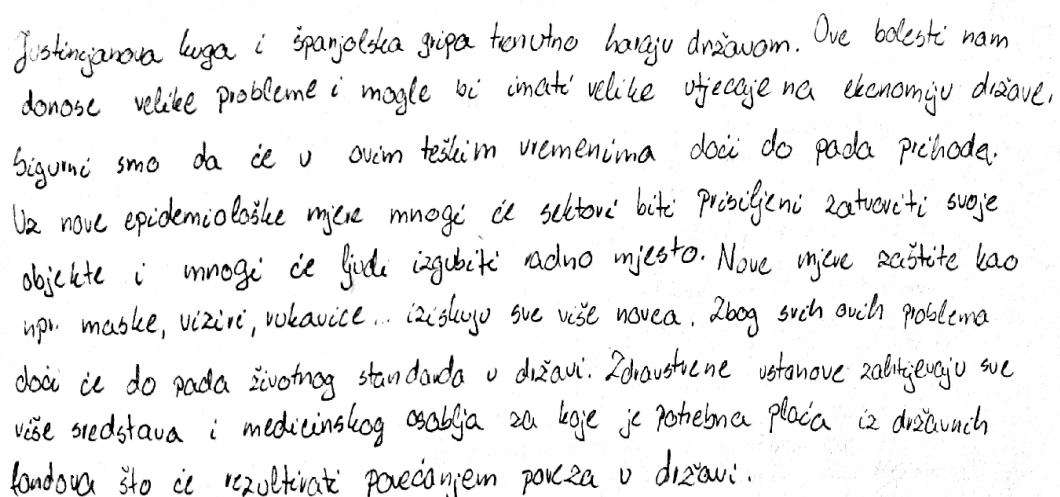 Justinijanova kuga i španjolska gripa trenutno haraju državom. Ove bolesti nam
donose velike probleme i mogle bi imati velike utjecaje na ekonomiju države.
Sigurni smo da će u ovim teškim vremenima doći do pada prihoda.
Uz nove epidemiološke mjere mnogi će sektori biti prisiljeni zatvoriti svoje
objekte i mnogi će ljudi izgubiti radno mjesto. Nove mjere zaštite kao
npr. maske, viziri, rukavice... iziskuju sve više novca. Zbog svih ovih problema
doći će do pada životnog standarda u državi. Zdravstvene ustanove zahtjevaju sve
više sredstava i medicinskog osoblja za koje je potrebna plaća iz državnih
fondova što će rezultirati povećanjem poreza u državi.